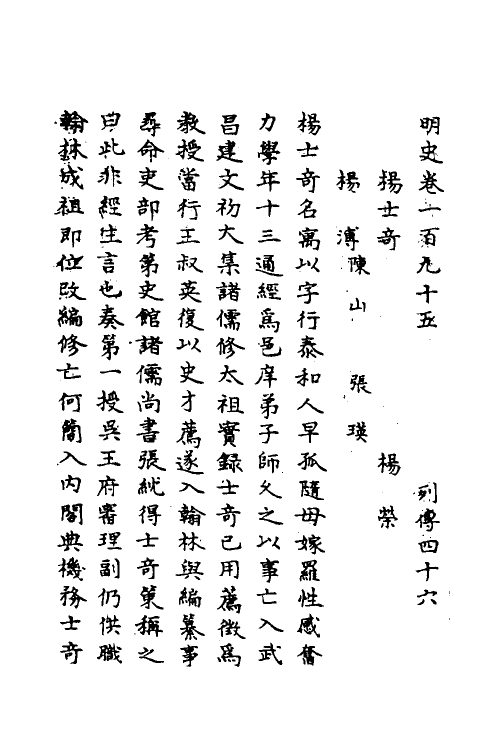 明史卷一百九十五　列傳四十六
楊士奇　楊榮
楊溥陳山　張瑛
楊士奇名寓以字行泰和人早孤隨母嫁羅性感奮
力學年十三通經爲邑庠弟子師久之以事亡入武
昌建文初大集諸儒修太祖實録士奇已用薦徴爲
教授當行王叔英復以史才薦遂入翰林與編纂事
尋命吏部考第史館諸儒尚書張紞得士奇策稱之
曰此非經生言也奏第一授吳王府審理副仍供職
翰林成祖即位改編修亡何簡入内閣典機務士奇